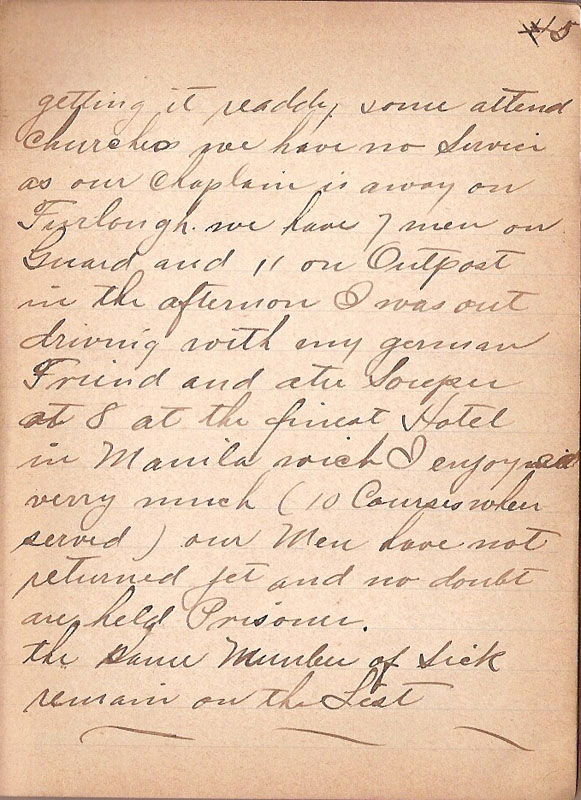 45
getting it readdy, some attend
Churches we have no Servici
as our Chaplain is away on
Furlough. we have 7 men on
Guard and 11 on Outpost
in the afternoon I was out
driving with my german
Friend and ate Souper
at 8 at the finest Hotel
in Manila wich I enjoyed
verry much (10 Courses wher
served) our Men have not
returned jet and no doubt
are held Prisoner.
the same Number of Sick
remain on the List